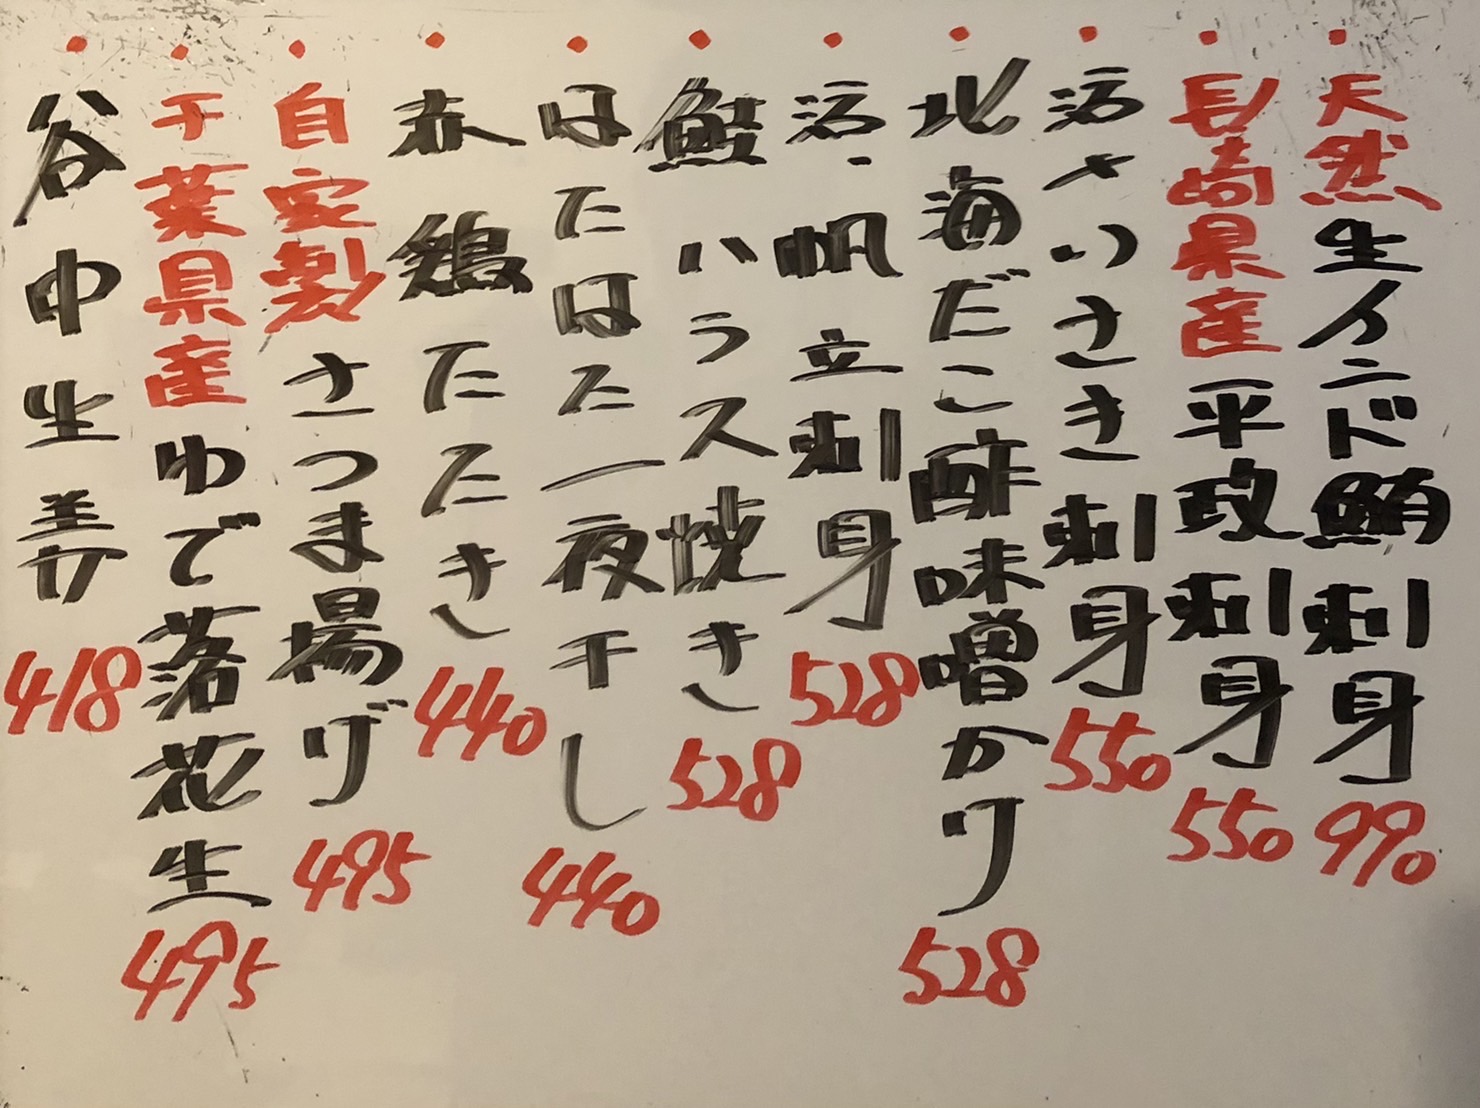 ・天然生インド鮪刺身 990
・長崎県産平政刺身 550
・活〆いさき刺身 550
・北海だこ酢味噌かけ 528
・活・帆立刺身 528
・鮭ハラス焼き 528
・はたはた一夜干し 440
・赤鶏たたき 440
・自家製さつま揚げ 495
・千葉県産ゆで落花生 495
・谷中生姜 418